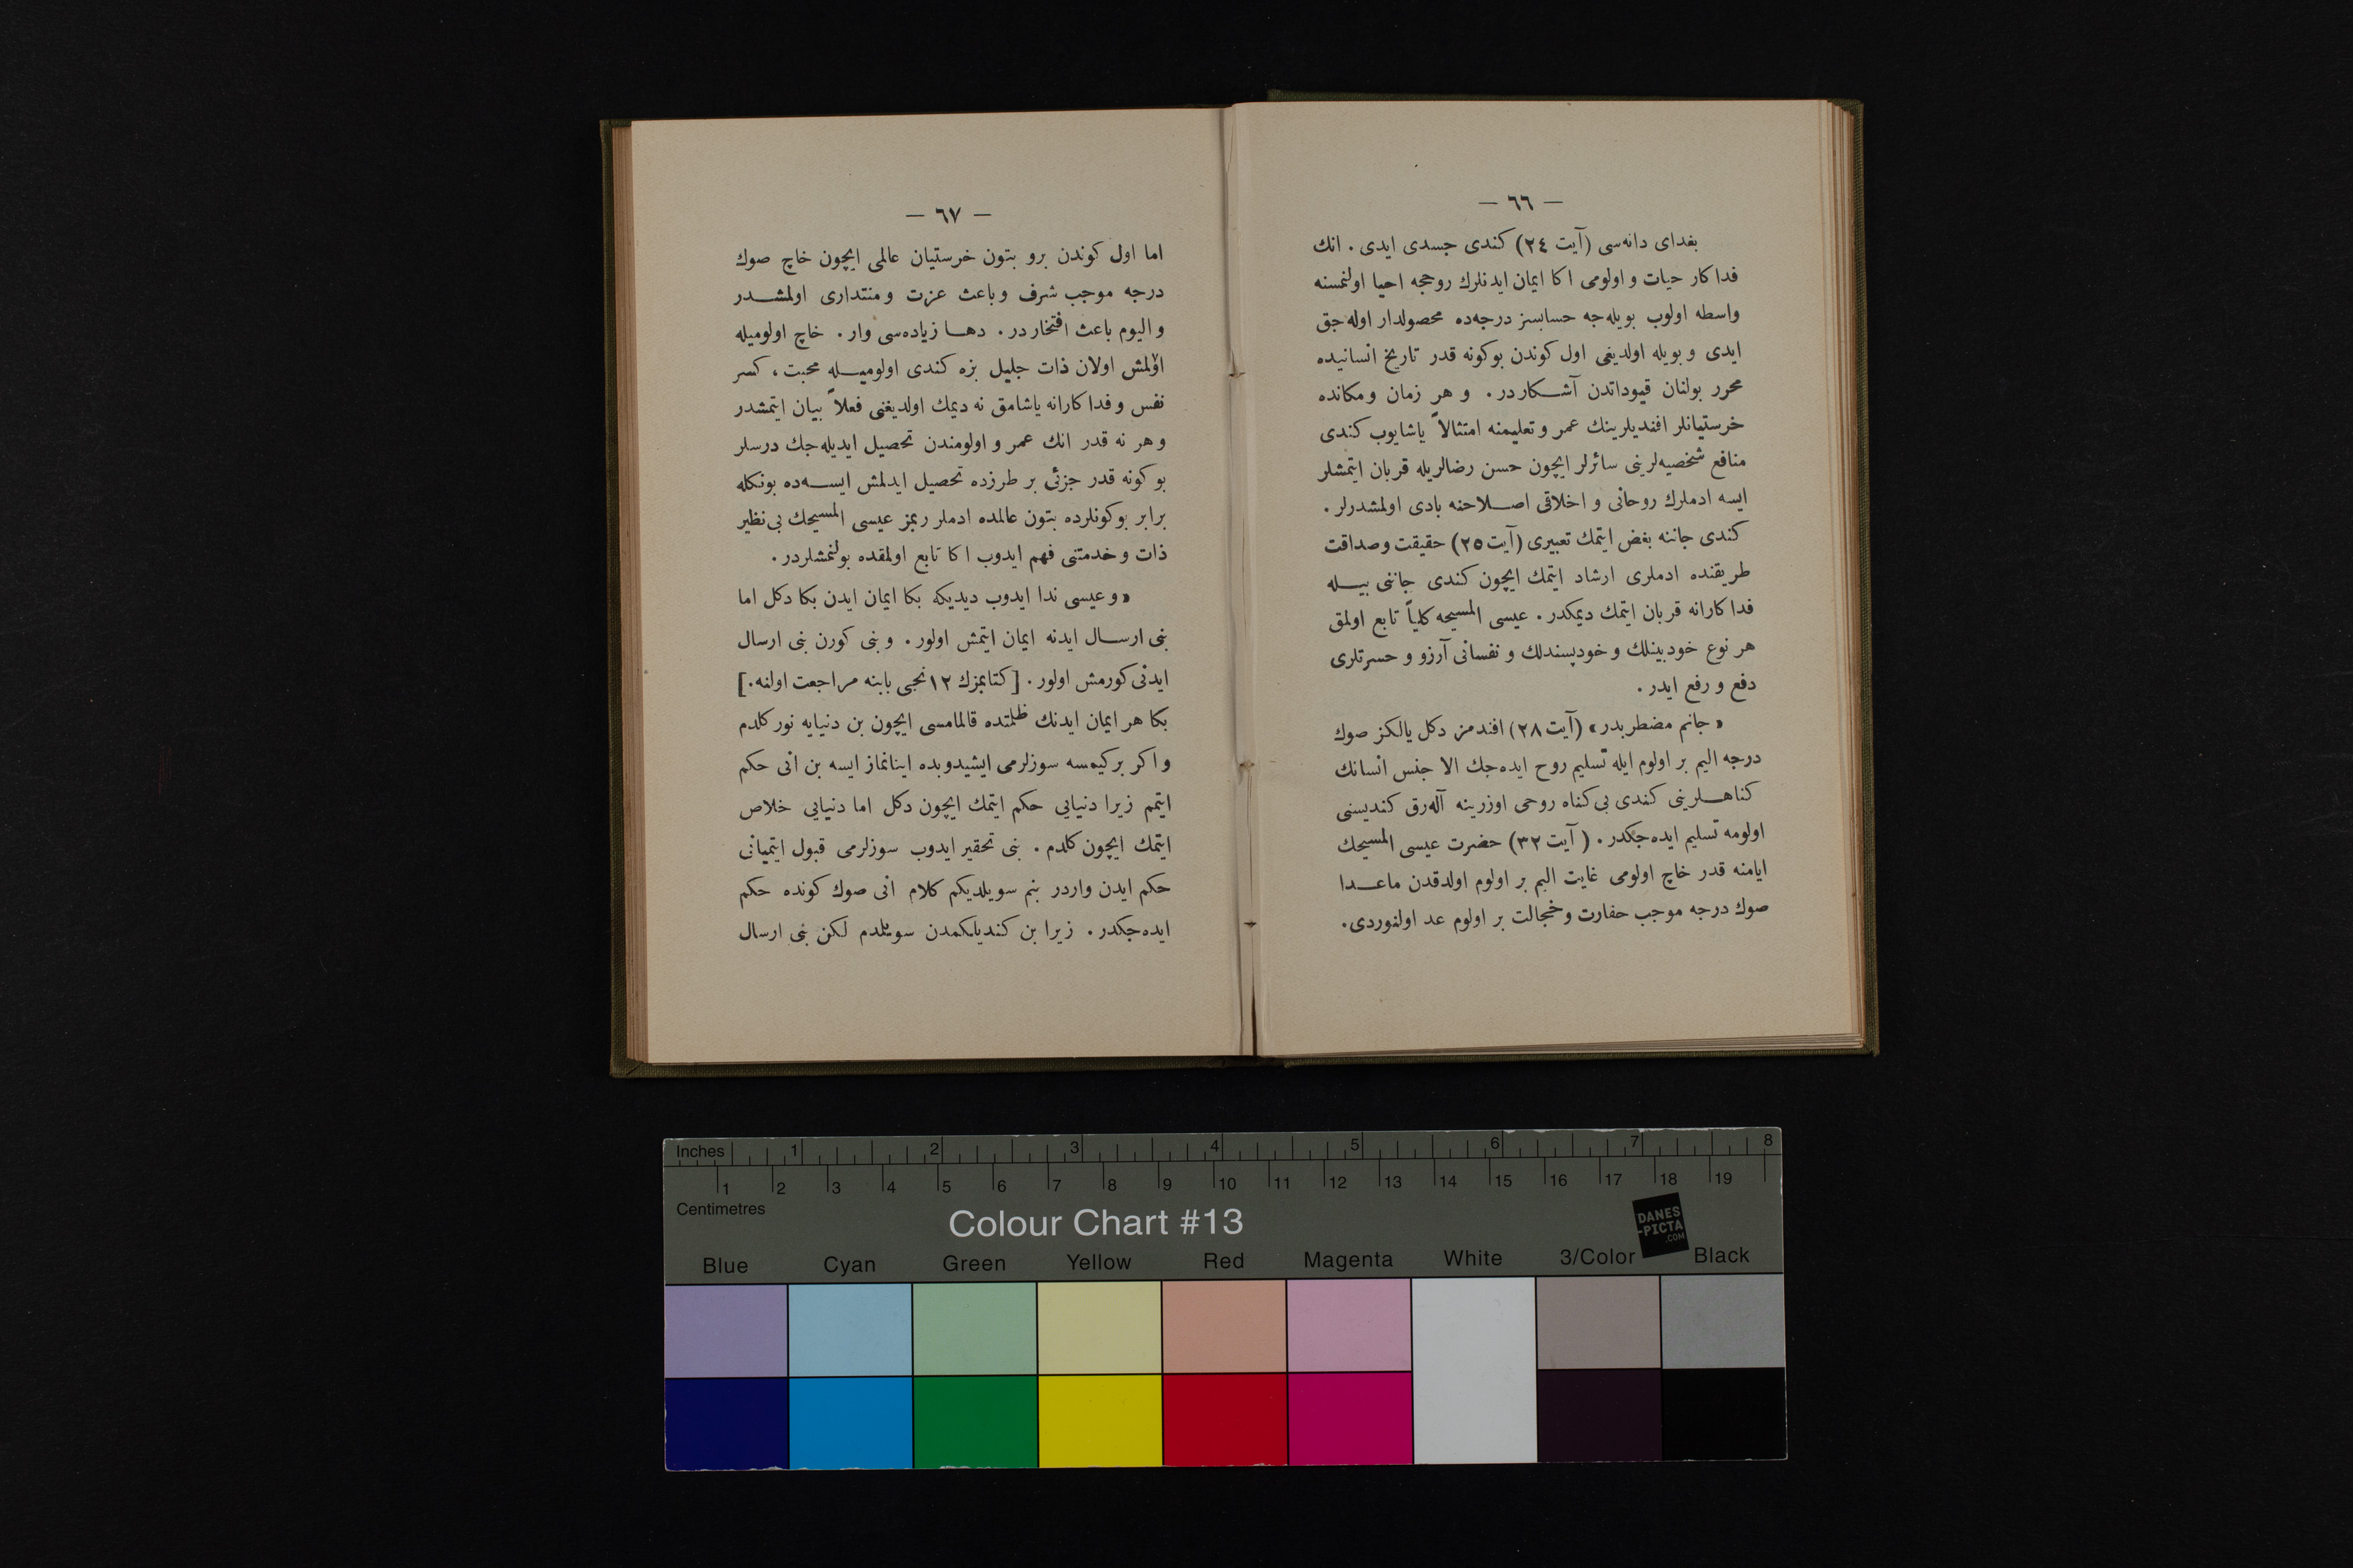 — ٦٦ —
بغدای دانه‌سی (آیت ٢٤) كندی جسدی ایدی . انك
فداكار حیات و اولومی اكا ایمان ایدنلرك روحجه احیا اولنمسنه
واسطه اولوب بویله‌جه حسابسز درجه‌ده محصولدار اوله‌جق
ایدی و بویله اولدیغی اول كوندن بوكونه قدر تاریخ انسانیده
محرر بولنان قیوداتدن آشكاردر . و هر زمان ومكانده
خرستیانلر افندیلرینك عمر و تعلیمنه امتثالاً یاشایوب كندی
منافع شخصیه‌لرینی سائرلر ایچون حسن رضالریله قربان ایتمشلر
ایسه ادملرك روحانی و اخلاقی اصلاحنه بادی اولمشدرلر .
كندی جاننه بغض ایتمك تعبیری (آیت ٢٥) حقیقت وصداقت
طریقنده ادملری ارشاد ایتمك ایچون كندی جاننی بیله
فداكارانه قربان ایتمك دیمكدر . عیسی المسیحه كلیاً تابع اولمق
هر نوع خودبینلك و خودپسندلك و نفسانی آرزو و حسرتلری
دفع و رفع ایدر .
« جانم مضطربدر » (آیت ٢٨) افندمز دكل یالكز صوك
درجه الیم بر اولوم ایله تسلیم روح ایده‌جك الا جنس انسانك
كناهلرینی كندی بی‌كناه روحی اوزرینه آله‌رق كندیسنی
اولومه تسلیم ایده‌جكدر . ( آیت ٣٢) حضرت عیسی المسیحك
ایامنه قدر خاچ اولومی غایت الیم بر اولوم اولدقدن ماعدا
صوك درجه موجب حقارت وخجالت بر اولوم عد اولنوردی.
— ٦٧ —
اما اول كوندن برو بتون خرستیان عالمی ایچون خاچ صوك
درجه موجب شرف وباعث عزت ومنتداری اولمشدر
و الیوم باعث افتخاردر . دها زیاده‌سی وار . خاچ اولومیله
اؤلمش اولان ذات جلیل بزه كندی اولومیله محبت ، كسر
نفس وفداكارانه یاشامق نه دیمك اولدیغنی فعلاً بیان ایتمشدر
وهر نه قدر انك عمر و اولومندن تحصیل ایدیله‌جك درسلر
بوكونه قدر جزئی بر طرزده تحصیل ایدلمش ایسه‌ده بونكله
برابر بوكونلرده بتون عالمده ادملر ربمز عیسی المسیحك بی‌نظیر
ذات وخدمتنی فهم ایدوب اكا تابع اولمقده بولنمشلردر .
« وعیسی ندا ایدوب دیدیكه بكا ایمان ایدن بكا دكل اما
بنی ارسال ایدنه ایمان ایتمش اولور . و بنی كورن بنی ارسال
ایدنی كورمش اولور . [ كتابمزك ١٢نجی بابنه مراجعت اولنه.]
بكا هر ایمان ایدنك ظلمتده قالمامسی ایچون بن دنیایه نور كلدم
واكر بركیمسه سوزلرمی ایشیدوبده اینانماز ایسه بن انی حكم
ایتمم زیرا دنیایی حكم ایتمك ایچون دكل اما دنیایی خلاص
ایتمك ایچون كلدم . بنی تحقیر ایدوب سوزلرمی قبول ایتمیانی
حكم ایدن واردر بنم سویلدیكم كلام انی صوك كونده حكم
ایده‌جكدر . زیرا بن كندیلكمدن سویلمدم لكن بنی ارسال
Inches 1 2 3 4 5 6 7 8
1 2 3 4 5 6 7 8 9 10 11 12 13 14 15 16 17 18 19
Centimetres
Colour Chart #13
DANES
-PICTA
.COM
Blue Cyan Green Yellow Red Magenta White 3/Color Black